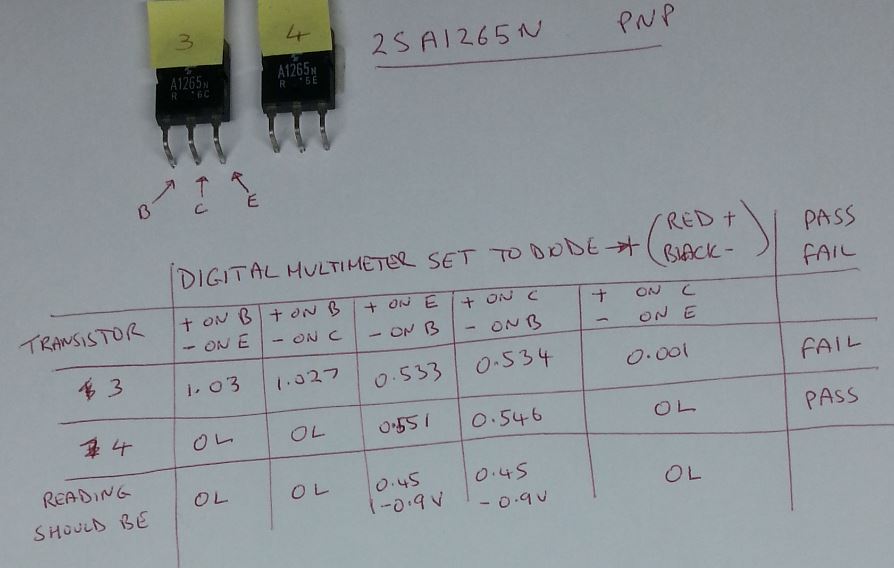 3 4
A1265N
R 6C
A1265N
R 6E
2SA1265N PNP
B C E
DIGITAL MULTIMETER SET TO DIODE (RED + BLACK -)
PASS
FAIL
TRANSISTOR
+ ON B
- ON E
+ ON B
- ON C
+ ON E
- ON B
+ ON C
- ON B
+ ON C
- ON E
3 1.03 1.027 0.533 0.534 0.001 FAIL
4 OL OL 0.551 0.546 OL PASS
READING
SHOULD BE
OL OL
0.45
-0.9V
0.45
-0.9V
OL